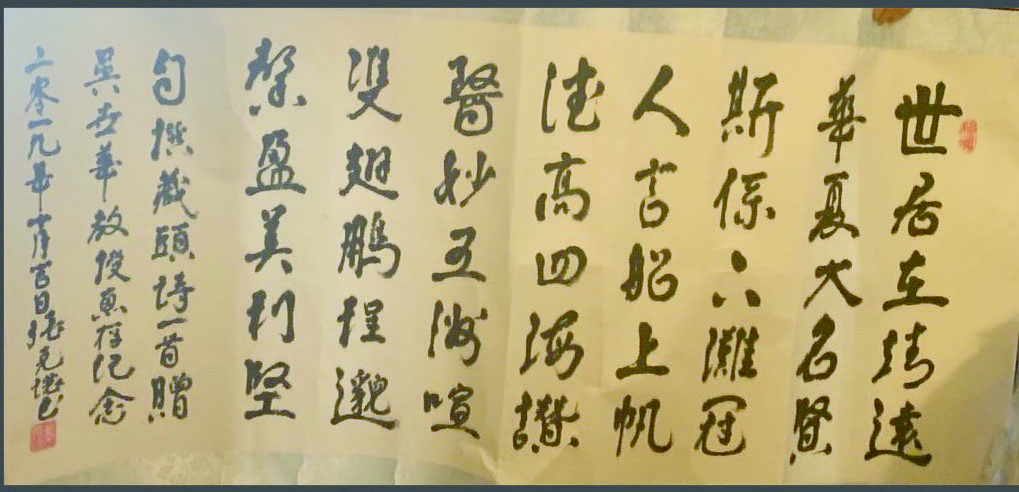 世居在靖遠
華夏大名賢
斯係六灘冠
人言船上帆
德高四海讚
醫妙五洲喧
雙翅鵬程邈
馨盈美利堅
句撰藏頭詩一首贈
吳世華教授惠存纪念
二零一九年十月吉日